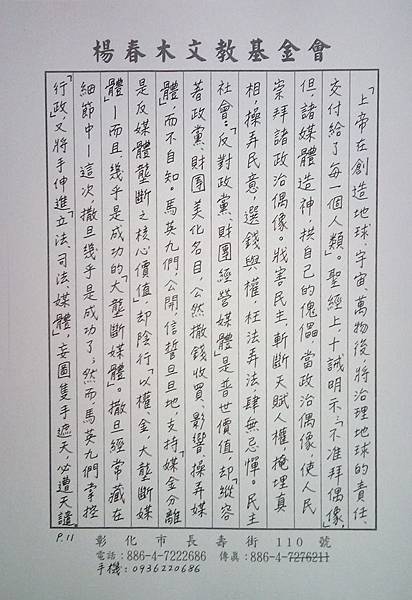 楊春木文教基金會
「上帝在創造地球、宇宙、萬物後,將治理地球的責任、
交付給了每一個人類」。聖經上,十誡明示:「不准拜偶像」,
但,諸媒體造神,拱自己的傀儡,當政治偶像,使人民
崇拜諸政治偶像。戕害民主,斬斷天賦人權,掩埋真
相,操弄民意,選錢與權,枉法弄法,肆無忌憚。民主
社會:「反對政黨、財團經營媒體」是普世價值,却「縱容
著政黨、財團,美化名目,公然撒錢收買、影響、操弄媒
體」,而不自知。馬英九們,公開,信誓旦旦地,支持「媒金分離
是反媒體壟斷之核心價值」,却陰行「以權、金,大壟斷媒
體」—而且,幾乎是成功的「大壟斷媒體」。撒旦經常藏在
細節中—這次,撒旦幾乎是成功了;然而,馬英九們掌控
「行政」,又將手伸進「立法、司法、媒體」,妄圖隻手遮天,必遭天譴。
P.11
彰化市長壽街110號
電話:886-4-7222686 傳眞:886-4-7276211
手機:0936220686